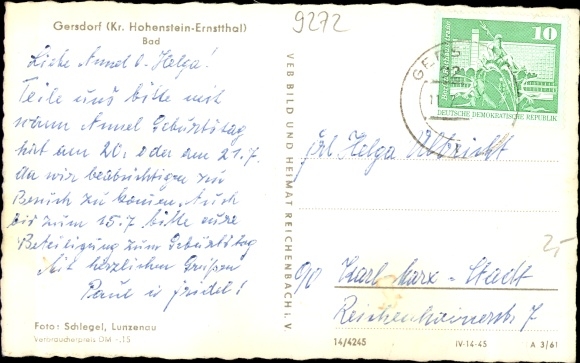 Gersdorf (Kr. Hohenstein-Ernstthal)
Bad
9272
Liebe Annel u. Helga!
Teile uns bitte mit
wann Annel Geburtstag
hat am 20. oder am 21.7.
da wir beabsichtigen zu
Besuch zu kommen. Auch
bis zum 15.7 bitte eure
Beteiligung zum Geburtstag
Mit herzlichen Grüßen
Paul u Friedel!
Foto: Schlegel, Lunzenau
Verbraucherpreis DM -.15
VEB BILD UND HEIMAT REICHENBACH i. V.
10
DEUTSCHE DEMOKRATISCHE REPUBLIK
GERS
Frl. Helga Ulbricht
2,-
90 Karl-Marx-Stadt
Reichenhainerstr. 7
14/4245
IV-14-45
A 3/61